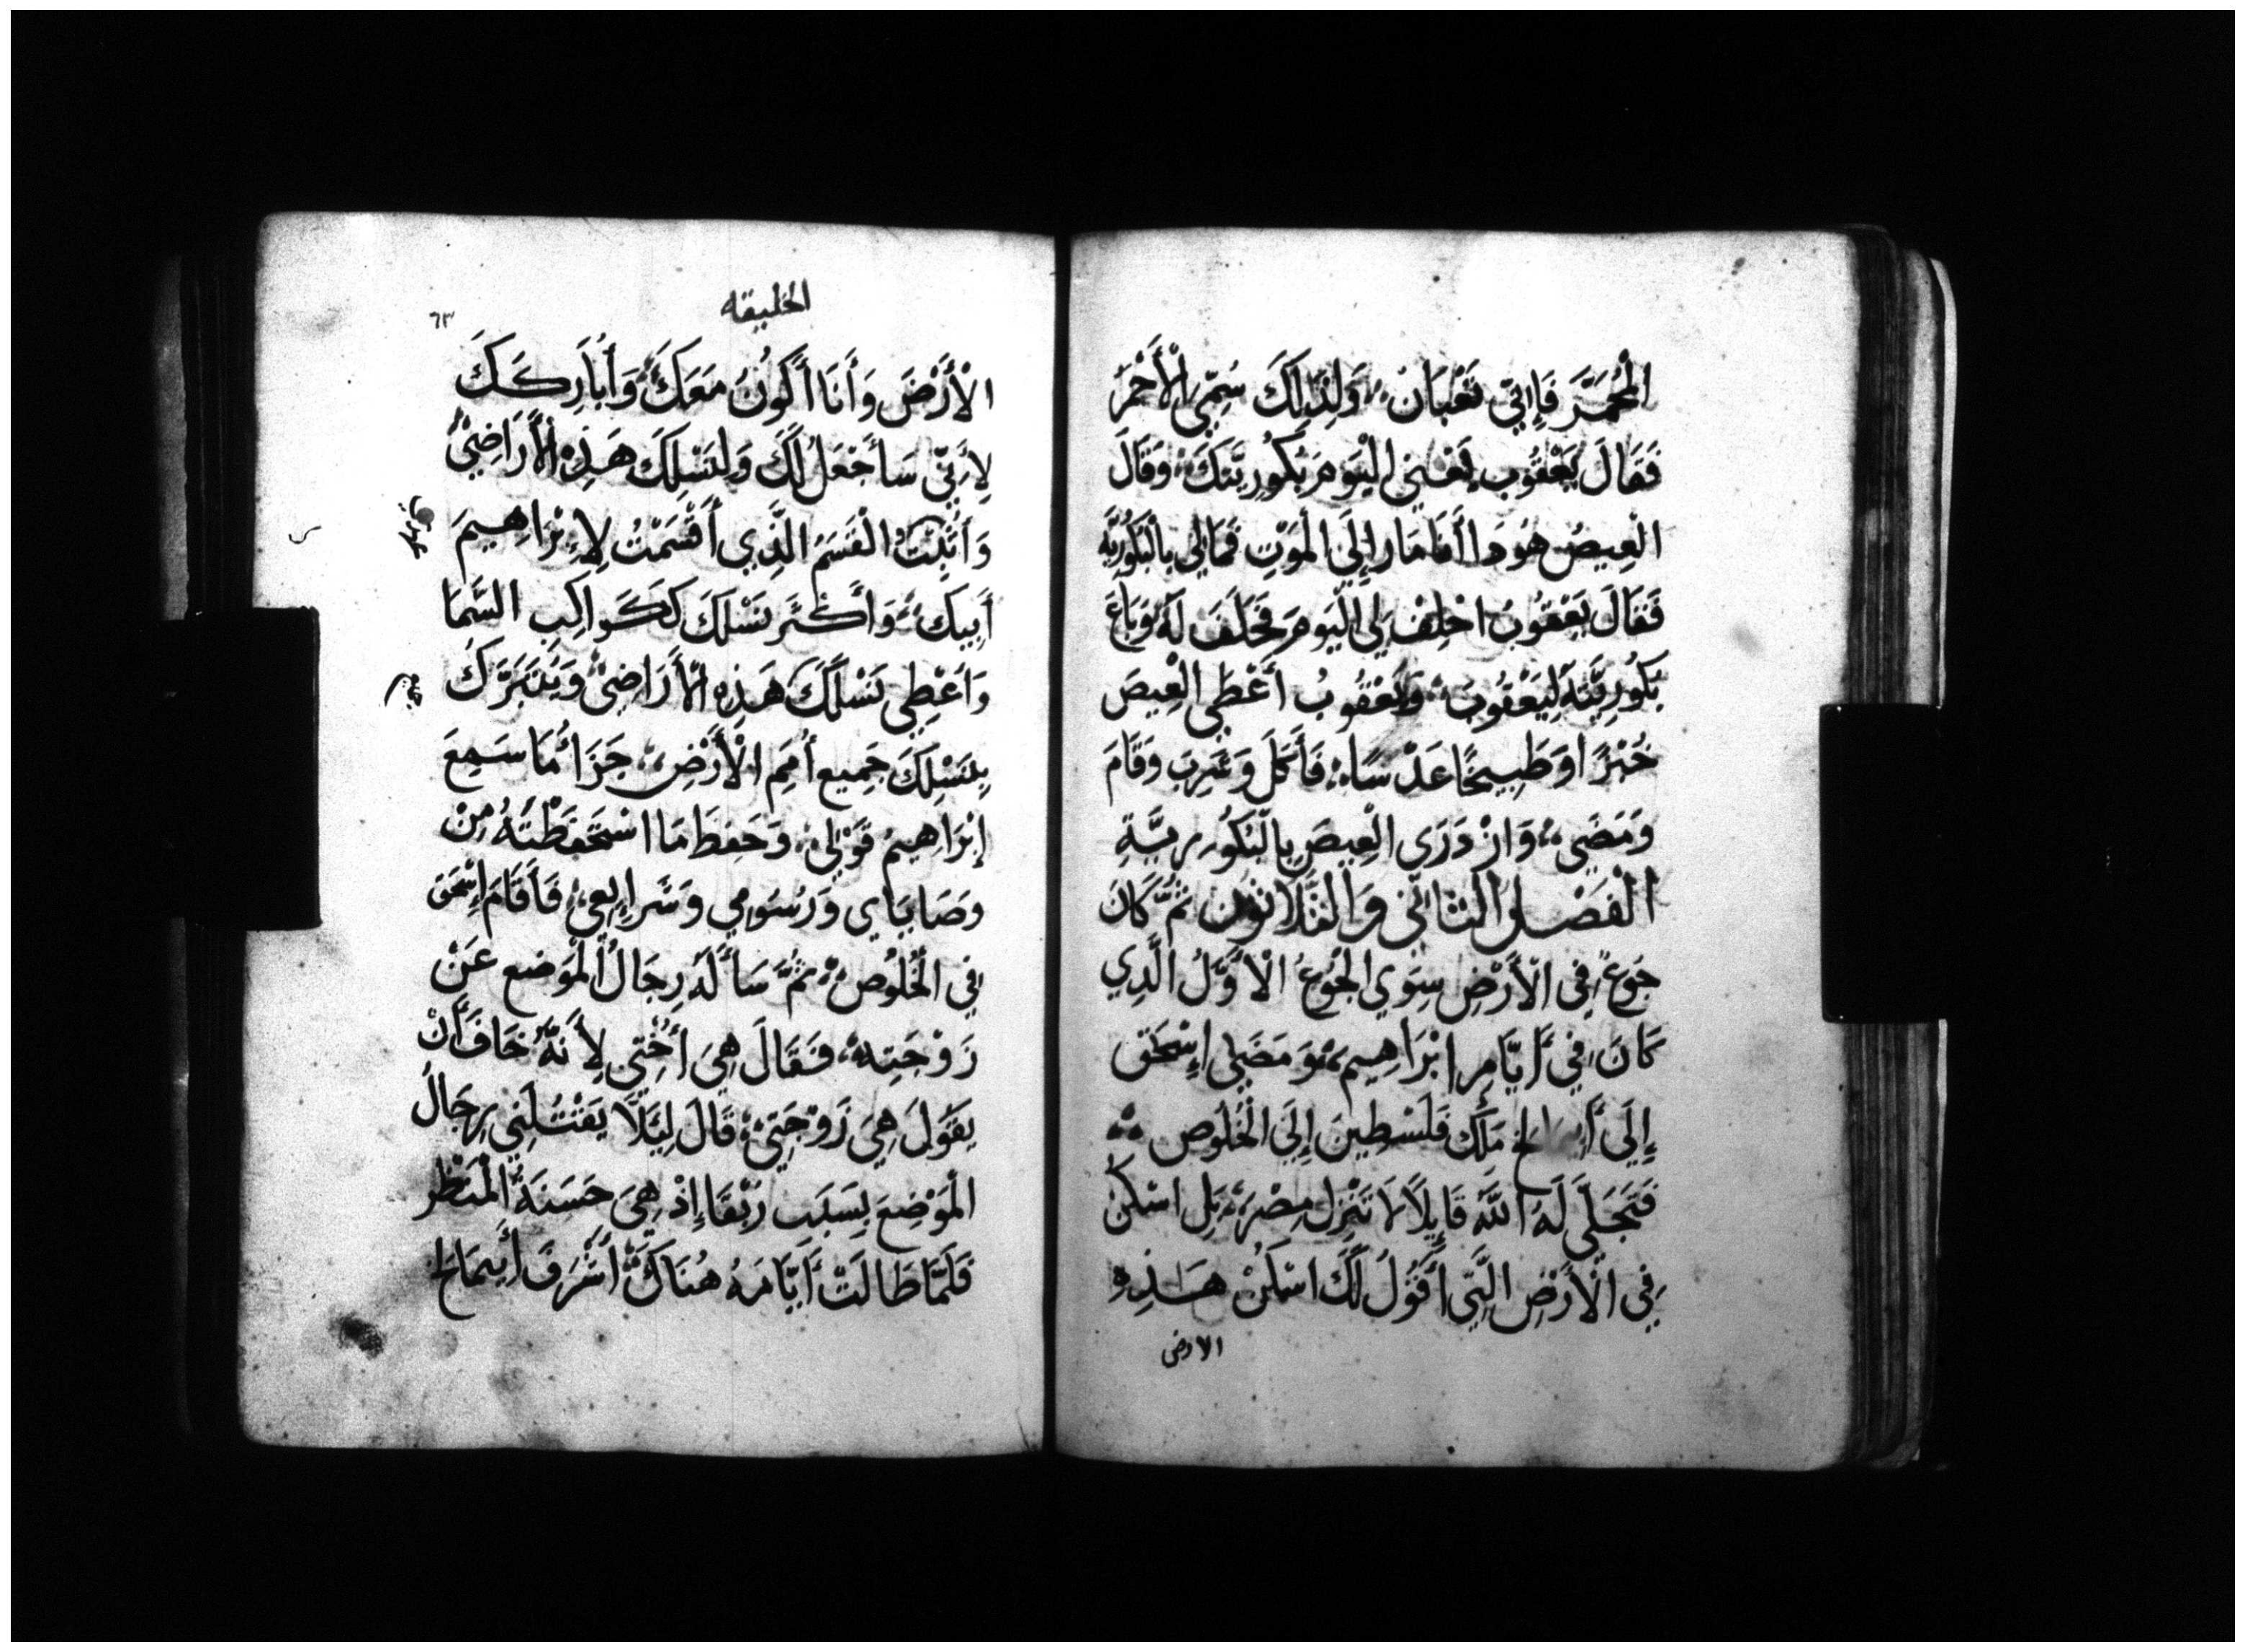 الْمُحْمَرَّ فَإِنِّي تَعْبَان وَلِذَلِكَ سُمِّيَ الْأَحْمَرُ
فَقَالَ يَعْقُوب بِعْنِي الْيَوْمَ بَكُورِيَّتَكَ وَقَالَ
الْعِيصُ هُوَذَا أَنَا مَار إِلَى الْمَوْتِ فَمَا لِي بِالْبَكُورِيَّهِ
فَقَالَ يَعْقُوبُ احْلِفْ لِي الْيَوْمَ فَحَلَفَ لَهُ وَبَاعَ
بَكُورِيَّتَهُ لِيَعْقُوبَ وَيَعْقُوبُ أَعْطَى الْعِيصَ
خُبْزًا وَطَبِيخًا عَدْسًا فَأَكَلَ وَشَرِبَ وَقَامَ
وَمَضَى وَازْدَرَى الْعِيصَ بِالْبَكُورِيَّةِ
الْفَصْلُ الثَّانِي وَالثَّلَاثُون ثُمَّ كَانَ
جُوعٌ فِي الْأَرْضِ سِوَى الْجُوعُ الْأَوَّلُ الَّذِي
كَانَ فِي أَيَّامِ إِبْرَاهِيم وَمَضَى إِسْحَق
إِلَى مَلِك فَلَسْطِينَ إِلَى الْخَلُوصِ
فَتَجَلَّى لَهُ اللَّهُ قَايِلًا لَا تَنْزِل مِصْرَ بَلِ اسْكُنْ
فِي الْأَرْضِ الَّتِي أَقُولُ لَكَ اسْكُنْ هَذِهِ
الارض
الخليقه
٦٣
الْأَرْضَ وَأَنَا أَكُونُ مَعَكَ وَأُبَارِكَكَ
لِأَنِّي سَأَجْعَلُ لَكَ وَلِنَسْلِكَ هَذِهِ الْأَرَاضِيَ
وَأُثْبِتُ الْقَسَمُ الَّذِي أَقْسَمْتُ لِإِبْرَاهِيمَ
أَبِيكَ وَأُكَثِّر نَسْلَكَ كَكَوَاكِبِ السَّمَا
وَأُعْطِي نَسْلَكَ هَذِهِ الْأَرَاضِيَ وَيَتَبَرَّكَ
بِنَسْلِكَ جَمِيع أُمَمِ الْأَرْضِ جَزَا مَا سَمِعَ
إِبْرَاهِيمُ قَوْلِي وَحَفِظَ مَا اسْتَحْفَظْتَهُ مِنْ
وَصَايَاي وَرُسُومِي وَشَرَايِعِي فَأَقَامَ إِسْحَق
فِي الْخُلُوص ثُمَّ سَأَلَهُ رِجَالُ الْمَوْضِعِ عَنْ
زَوْجَتِهِ فَقَالَ هِيَ أُخْتِي لِأَنَّهُ خَافَ أَنْ
يَقُولَ هِيَ زَوْجَتِي قَالَ لِيَلَّا يَقْتُلْنِي رِجَالُ
الْمَوْضِعَ بِسَبَبِ رَبْقَا إِذْ هِيَ حَسَنَةُ الْمَنْظَر
فَلَمَّا طَالَتْ أَيَّامَهُ هُنَاكَ أَشْرَفَ أَبِيمَالِخ